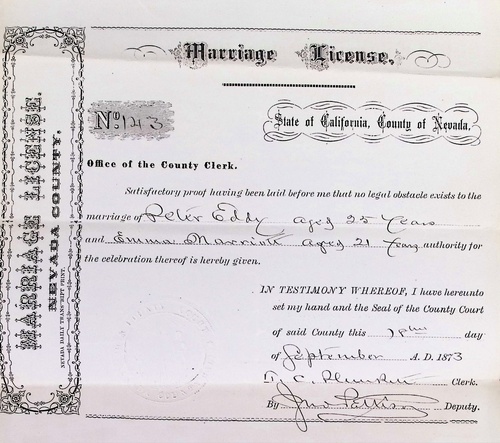 Marriage License.
No. 143
State of California, County of Nevada.
Office of the County Clerk.
Satisfactory proof having been laid before me that no legal obstacle exists to the
marriage of Peter Eddy aged 25 Years
and Emma Marriott aged 21 Years authority for
the celebration thereof is hereby given.
IN TESTIMONY WHEREOF, I have hereunto
set my hand and the Seal of the County Court
of said County this day
of September A. D. 1873
Clerk.
By Jno Pattison Deputy.
MARRIAGE LICENSE.
NEVADA COUNTY.
NEVADA DAILY TRANSCRIPT PRINT.